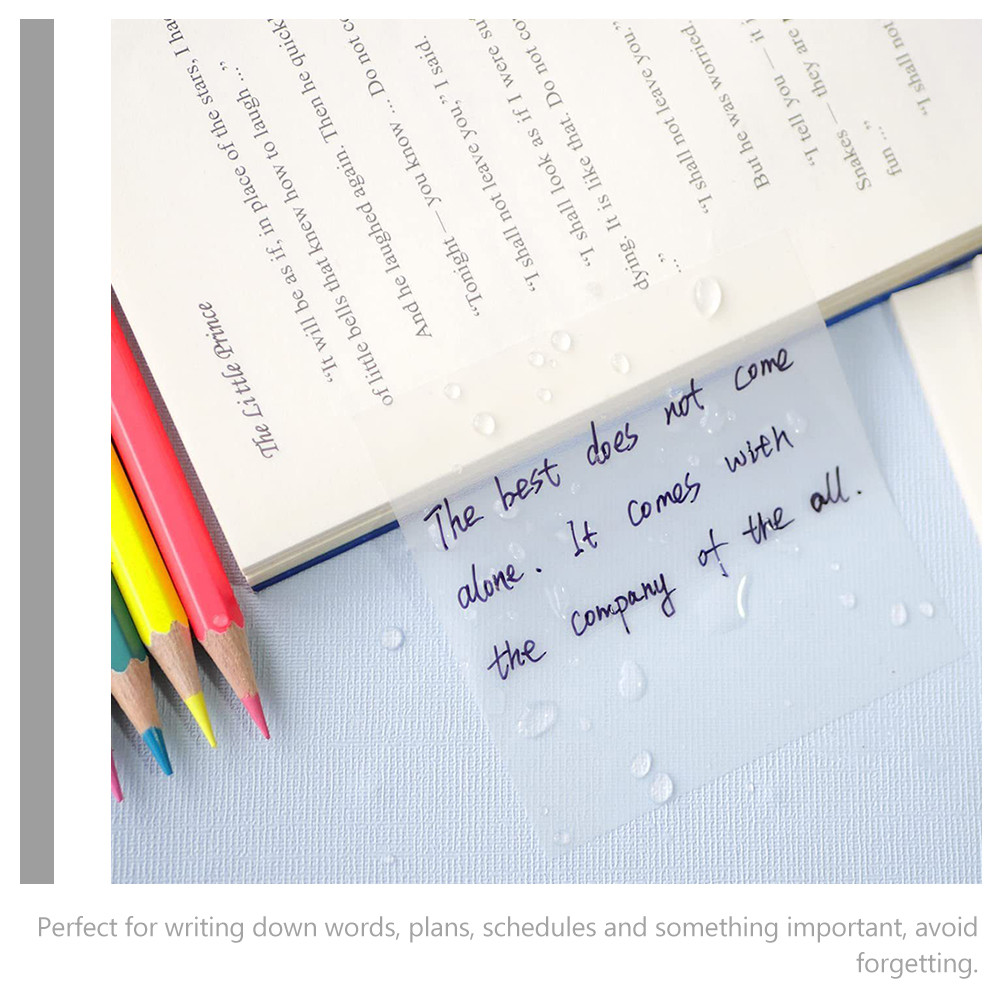 The Little Prince
"It will be as if, in place of the stars, I had
of little bells that knew how to laugh ..."
And he laughed again. Then he quick
"Tonight — you know ... Do not co
"I shall not leave you," I said.
"I shall look as if I were su
dying. It is like that. Do not co
..."
"I shall not leave you."
But he was worried.
"I tell you — it i
Snakes — they are
fun ..."
"I shall not
The best does not come
alone. It comes with
the company of the all.
Perfect for writing down words, plans, schedules and something important, avoid
forgetting.